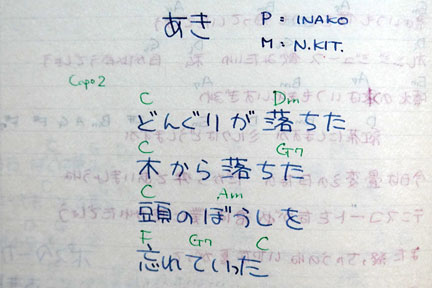 あき P: INAKO
M: N.KIT.
Capo 2
C Dm
どんぐりが落ちた
C G7
木から落ちた
C Am
頭のぼうしを
F G7 C
忘れていった